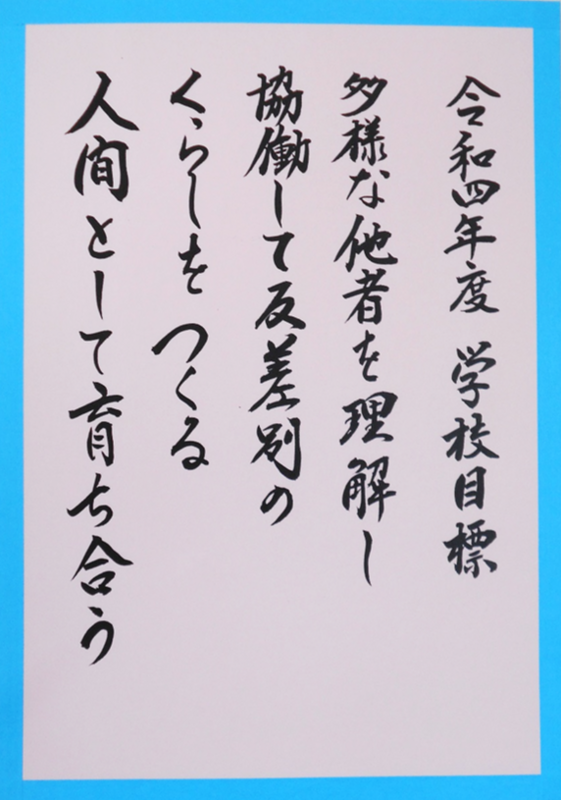 令和四年度 学校目標
多様な他者を理解し
協働して反差別の
くらしをつくる
人間として育ち合う